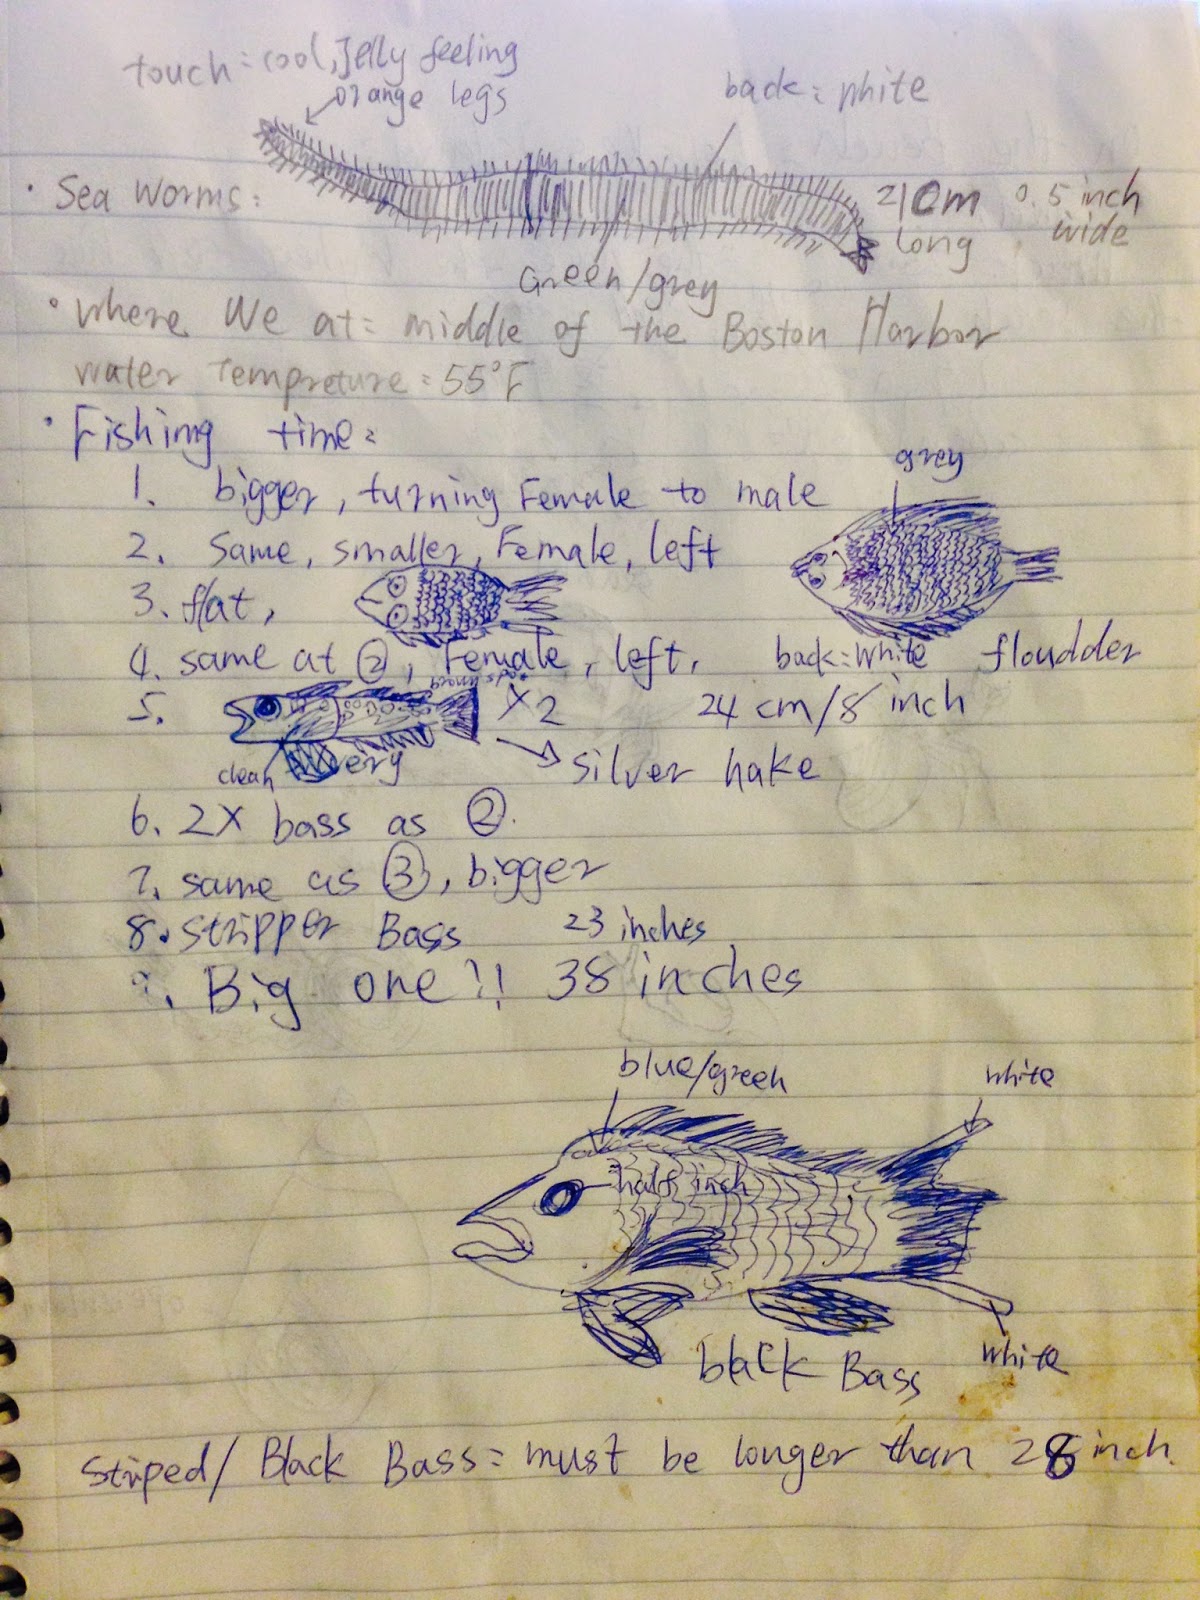 touch: cool, Jelly feeling
orange legs
back: white
• Sea Worms:
21cm long
0.5 inch wide
Green/grey
• where We at: middle of the Boston Harbor
water Tempreture: 55°F
• Fishing time:
grey
1. bigger, turning Female to male
2. Same, smaller, Female, left
3. flat,
4. same at ②, Female, left,
back: white floudder
5. X2
24 cm/8 inch
clean
silver hake
6. 2X bass as ②.
7. same as ③, bigger
8. stripper Bass 23 inches
9. Big one!! 38 inches
blue/green
white
half inch
white
black Bass
Striped/Black Bass: must be longer than 28 inch